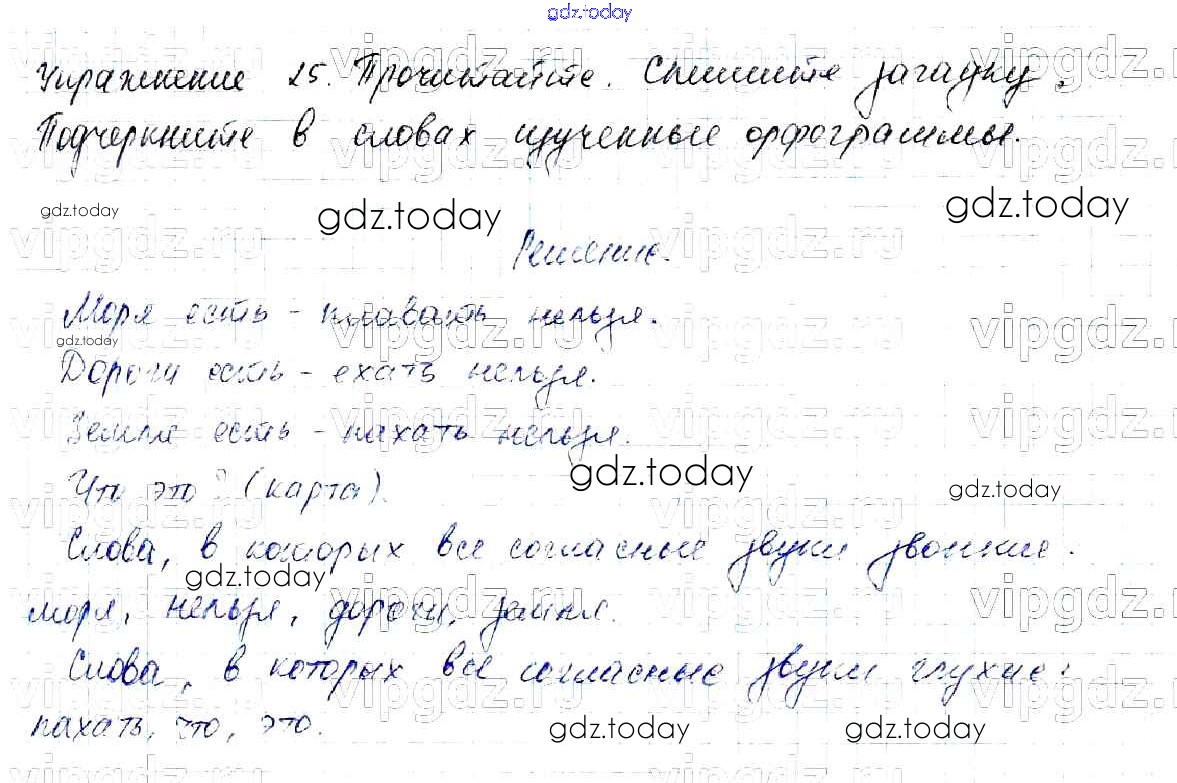 gdz.today
Упражнение 25. Прочитайте. Спишите загадку.
Подчеркните в словах изученные орфограммы.
gdz.today gdz.today gdz.today
Решение.
Моря есть - плавать нельзя.
gdz.today
Дороги есть - ехать нельзя.
Земля есть - пахать нельзя.
gdz.today
Что это? (карта).
gdz.today
Слова, в которых все согласные звуки звонкие.
gdz.today
моря, нельзя, дороги, земля.
Слова, в которых все согласные звуки глухие:
пахать, что, это.
gdz.today gdz.today
vipgdz.ru